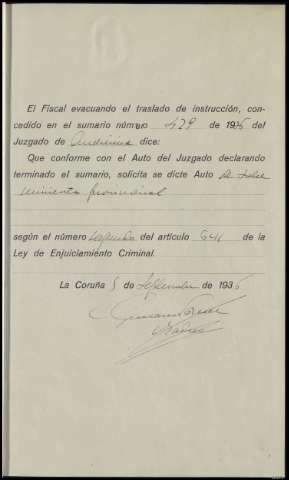 El Fiscal evacuando el traslado de instrucción, con-
cedido en el sumario número 429 de 1936 del
Juzgado de dice:
Que conforme con el Auto del Juzgado declarando
terminado el sumario, solicita se dicte Auto de sobre
seimiento provisional
según el número segundo del artículo 641 de la
Ley de Enjuiciamiento Criminal.
La Coruña 5 de Septiembre de 1936